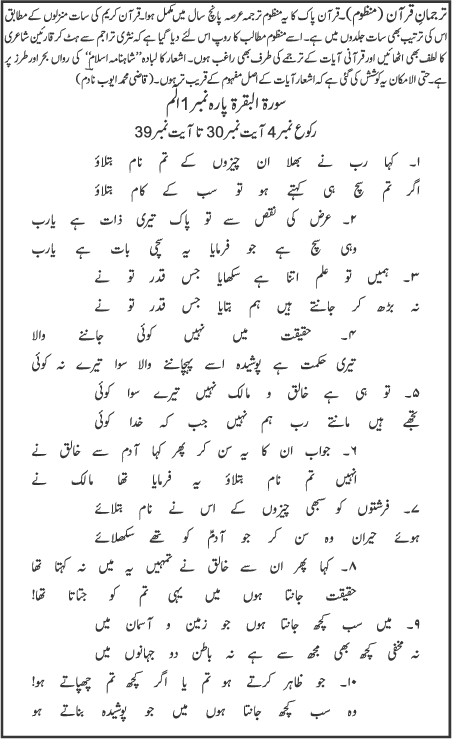 ترجمانِ قرآن (منظوم)۔ قرآن پاک کا یہ منظوم ترجمہ عرصہ پانچ سال میں مکمل ہوا۔ قرآن کریم کی سات منزلوں کے مطابق
اس کی ترتیب بھی سات جلدوں میں ہے۔ اسے منظوم مطالب کا روپ اس لئے دیا گیا ہے کہ نثری تراجم سے ہٹ کر قارئین شاعری
کا لطف بھی اٹھائیں اور قرآنی آیات کے ترجمے کی طرف بھی راغب ہوں۔ اشعار کا لبادہ ”شاہنامہ اسلام“ کی رواں بحر اور طرز پر
ہے۔ حتی الامکان یہ کوشش کی گئی ہے کہ اشعار آیات کے اصل مفہوم کے قریب تر ہوں۔ (قاضی محمد ایوب نادم)
سورۃ البقرۃ پارہ نمبر 1 الٓم
رکوع نمبر 4 آیت نمبر 30 تا آیت نمبر 39
۱۔ کہا رب نے بھلا ان چیزوں کے تم نام بتلاؤ
اگر تم سچ ہی کہتے ہو تو سب کے کام بتلاؤ
۲۔ عرض کی نقص سے تو پاک تیری ذات ہے یارب
وہی سچ ہے جو فرمایا یہ سچی بات ہے یارب
۳۔ ہمیں تو علم اتنا ہے سکھایا جس قدر تو نے
نہ بڑھ کر جانتے ہیں ہم بتایا جس قدر تو نے
۴۔ حقیقت میں نہیں کوئی جاننے والا
تیری حکمت ہے پوشیدہ اسے پہچاننے والا سوا تیرے نہ کوئی
۵۔ تو ہی ہے خالق و مالک نہیں تیرے سوا کوئی
تجھے ہیں مانتے رب ہم نہیں جب کہ خدا کوئی
۶۔ جواب ان کا یہ سن کر پھر کہا آدم سے خالق نے
انہیں تم نام بتلاؤ یہ فرمایا تھا مالک نے
۷۔ فرشتوں کو سبھی چیزوں کے اس نے نام بتلائے
ہوئے حیران وہ سن کر جو آدمؑ کو تھے سکھلائے
۸۔ کہا پھر ان سے خالق نے تمہیں یہ میں نہ کہتا تھا
حقیقت جانتا ہوں میں یہی تم کو جتاتا تھا!
۹۔ میں سب کچھ جانتا ہوں جو زمین و آسمان میں
نہ مخفی کچھ بھی مجھ سے ہے نہ باطن دو جہانوں میں
۱۰۔ جو ظاہر کرتے ہو تم یا اگر کچھ تم چھپاتے ہو!
وہ سب کچھ جانتا ہوں میں جو پوشیدہ بناتے ہو